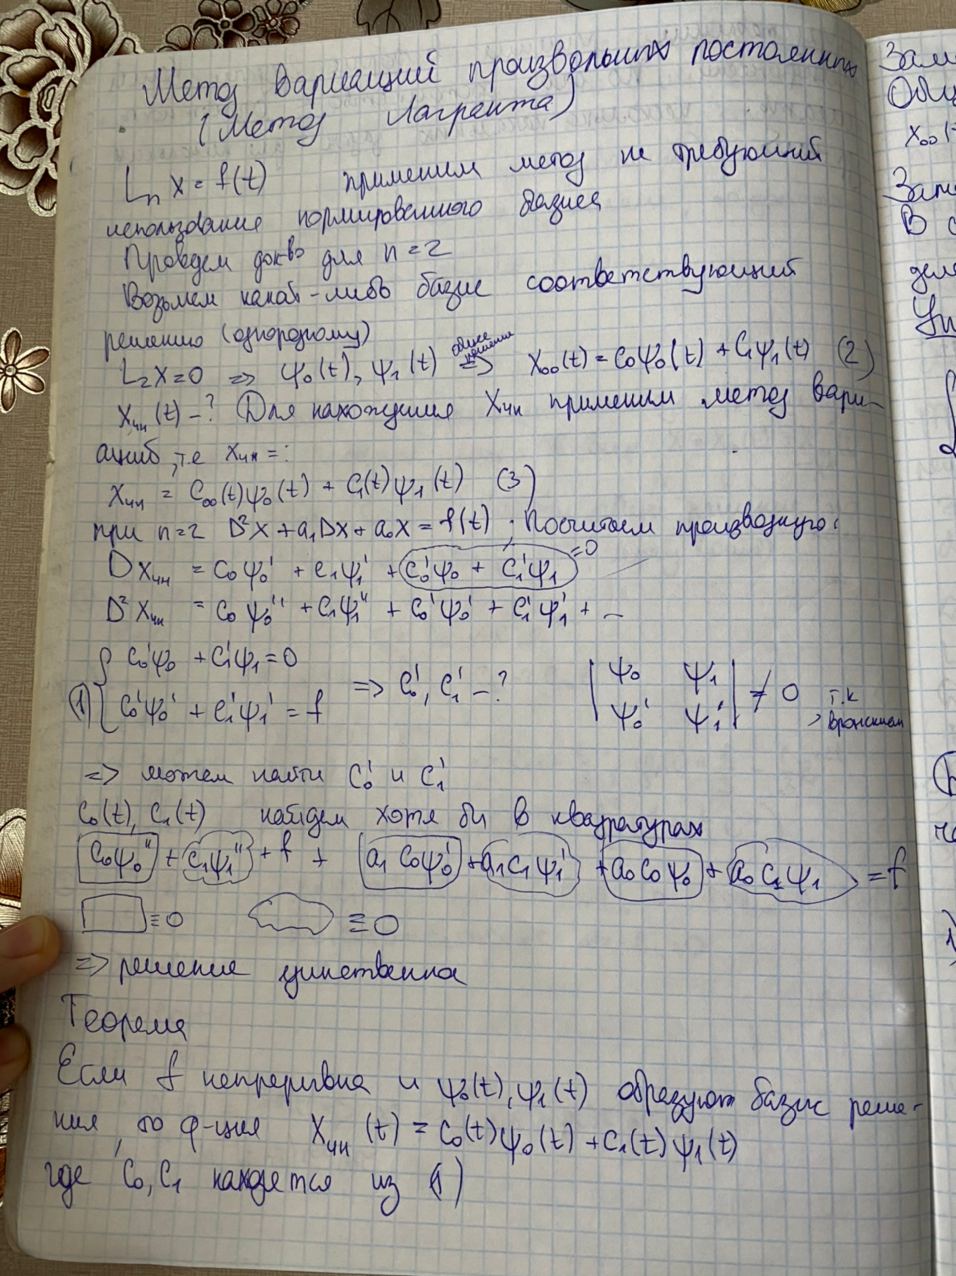 Метод вариаций произвольных постоянных
(Метод Лагранжа)
Lₙ x = f(t) применим метод не требующий
использование нормированного базиса
Проведем док-во для n=2
Возьмем какой-либо базис соответствующий
решению (однородному)
L₂x=0 => ψ₀(t), ψ₁(t) общее решение => X₀₀(t) = C₀ψ₀(t) + C₁ψ₁(t) (2)
Xчн(t) - ? Для нахождения Xчн применим метод вари-
аций, т.е Xчн =:
Xчн = C₀₀(t)ψ₀(t) + C₁(t)ψ₁(t) (3)
при n=2 D²x + a₁Dx + a₀x = f(t). Посчитаем производную:
Dxчн = C₀ψ₀' + C₁ψ₁' + C₀'ψ₀ + C₁'ψ₁ =0
D²xчн = C₀ψ₀'' + C₁ψ₁'' + C₀'ψ₀' + C₁'ψ₁' + ...
{ C₀'ψ₀ + C₁'ψ₁ = 0
(1) { C₀'ψ₀' + C₁'ψ₁' = f => C₀', C₁' - ? | ψ₀ ψ₁ | | ψ₀' ψ₁' | ≠ 0, т.к вронскиан
=> можем найти C₀' и C₁'
C₀(t), C₁(t) найдем хотя бы в квадратурах
C₀ψ₀'' + C₁ψ₁'' + f + a₁C₀ψ₀' + a₁C₁ψ₁' + a₀C₀ψ₀ + a₀C₁ψ₁ = f
≡0 ≡0
=> решение
Теорема
Если f непрерывна и ψ₀(t), ψ₁(t) образуют базис реше-
ния, то ф-ция Xчн(t) = C₀(t)ψ₀(t) + C₁(t)ψ₁(t)
где C₀, C₁ из (1)
Зам
X₀₀(
В с